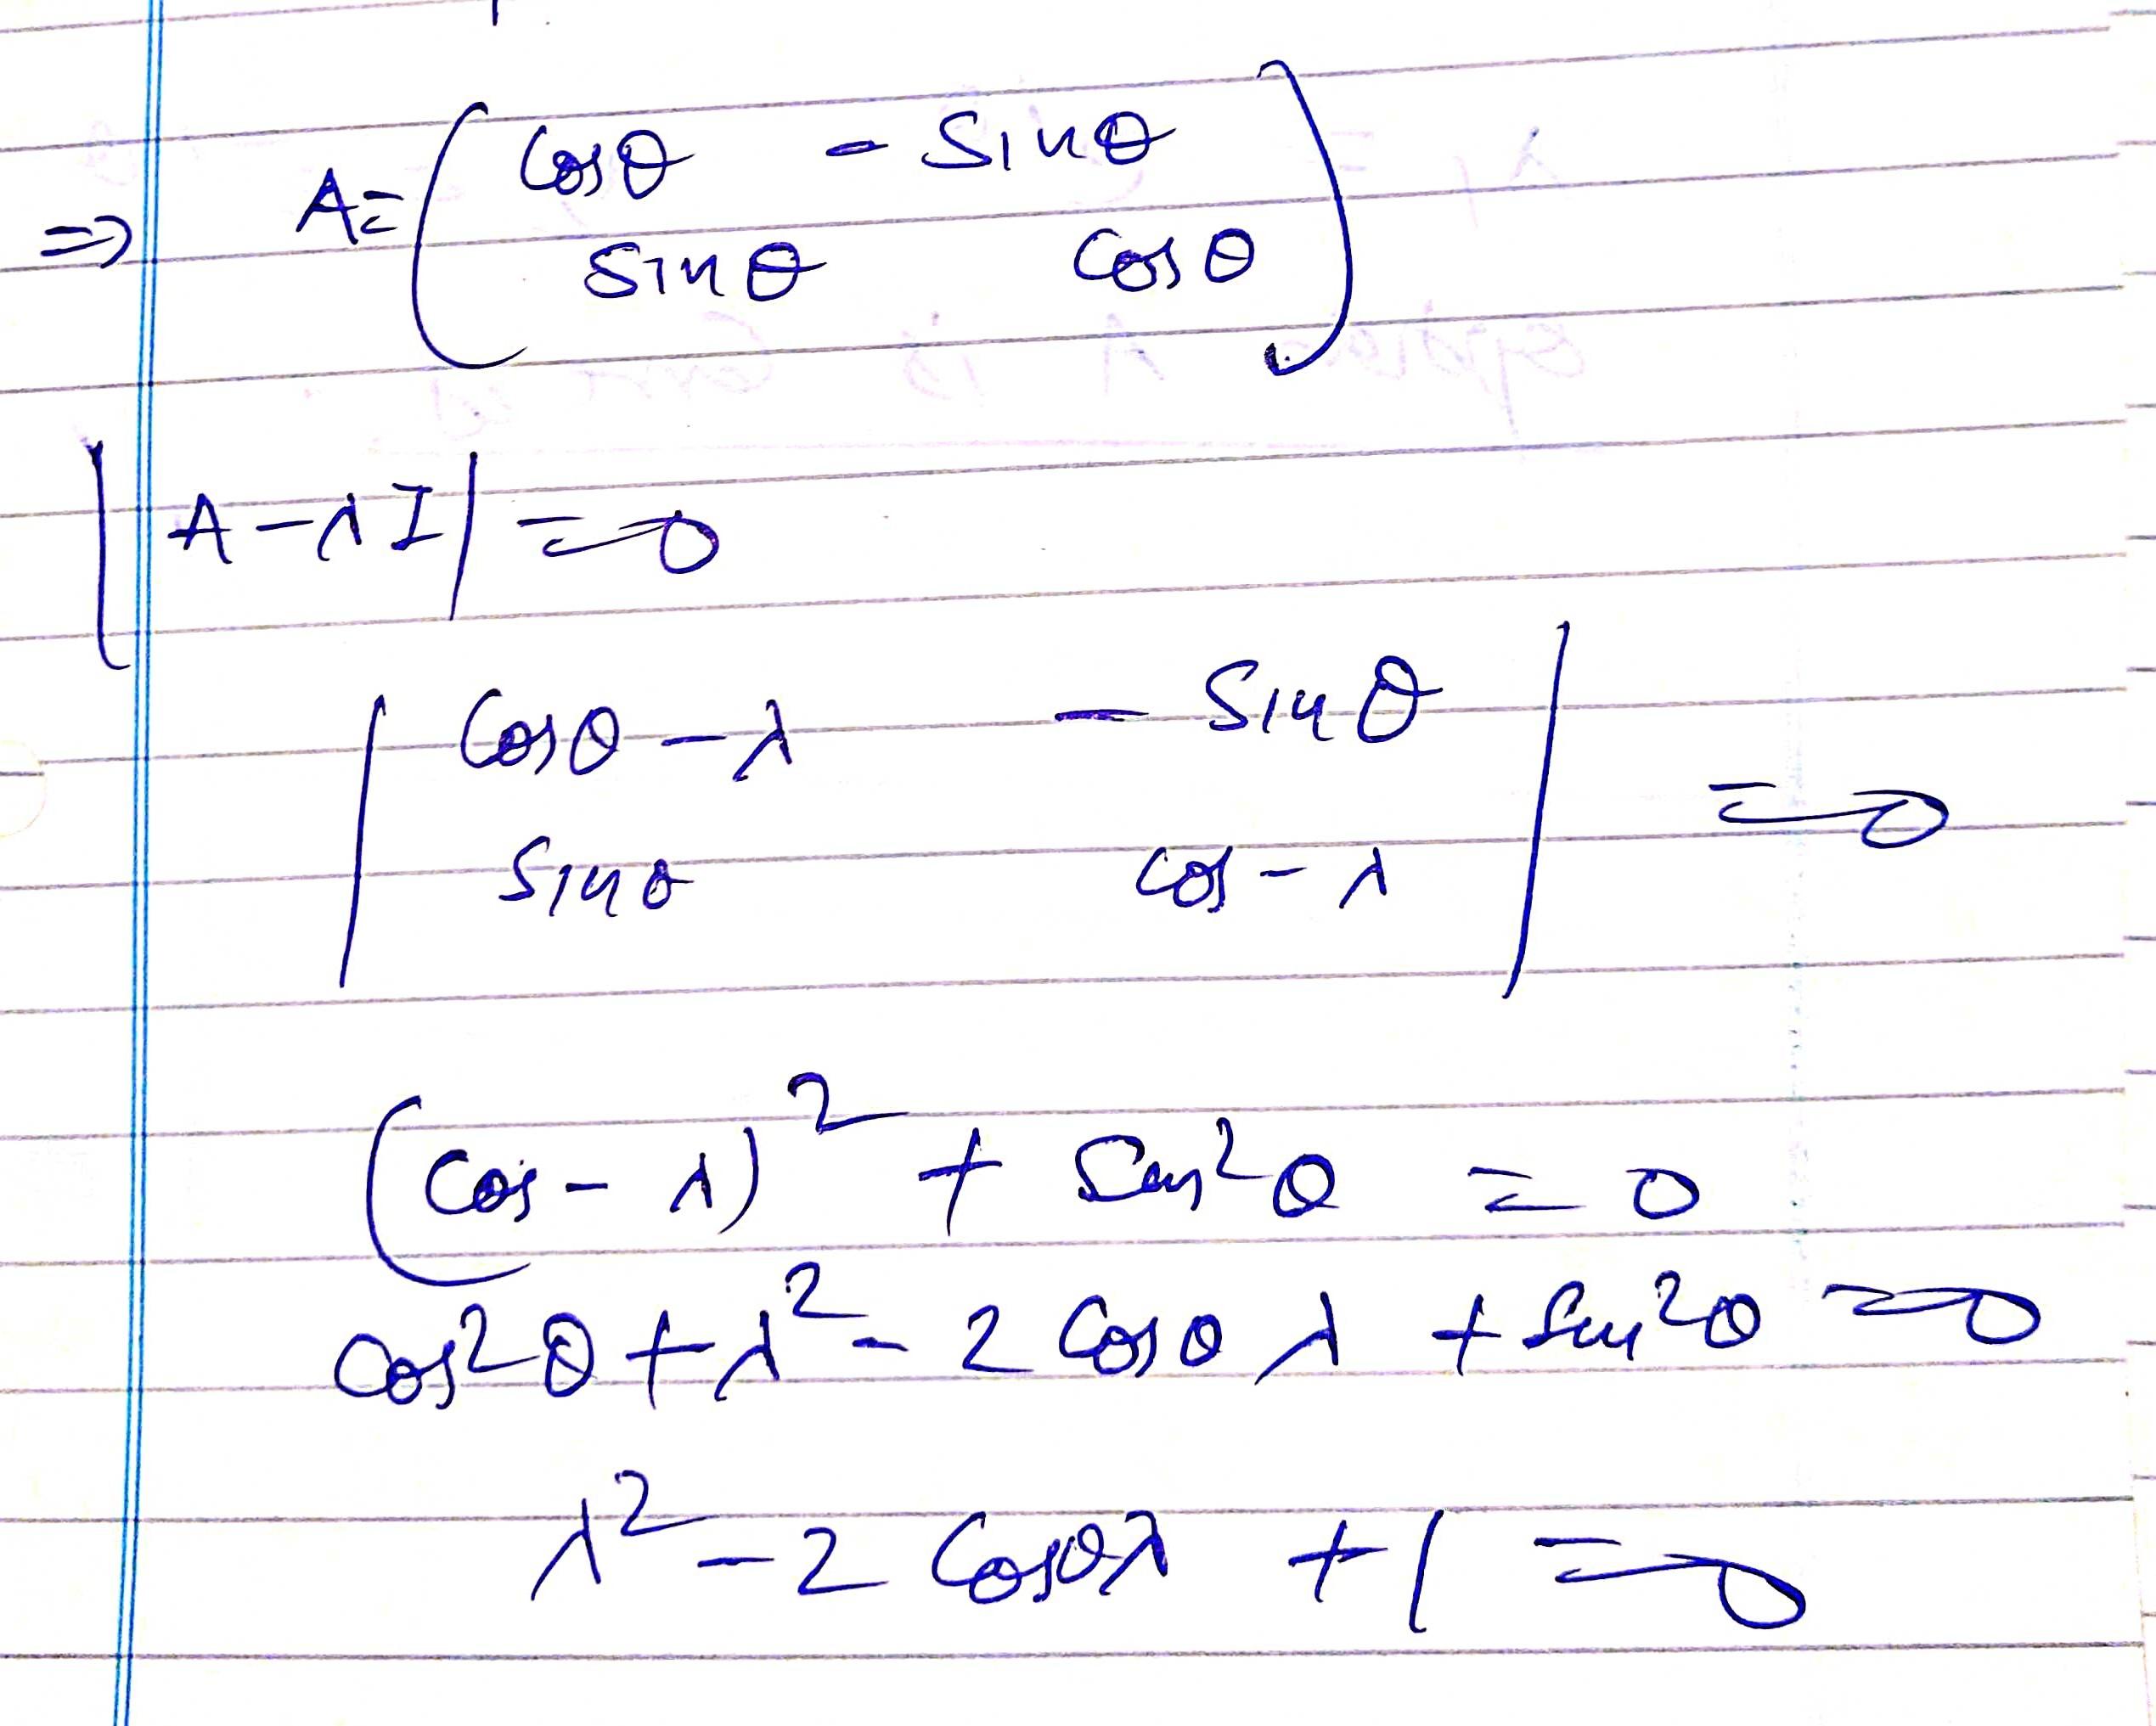 ⇒ A = ( cosθ   - sinθ
sinθ   cosθ )
| A - λI | = 0
| cosθ - λ   - sinθ |
| sinθ   cos - λ | = 0
(cos - λ)² + sin²θ = 0
cos²θ + λ² - 2 cosθ λ + sin²θ = 0
λ² - 2 cosθλ + 1 = 0